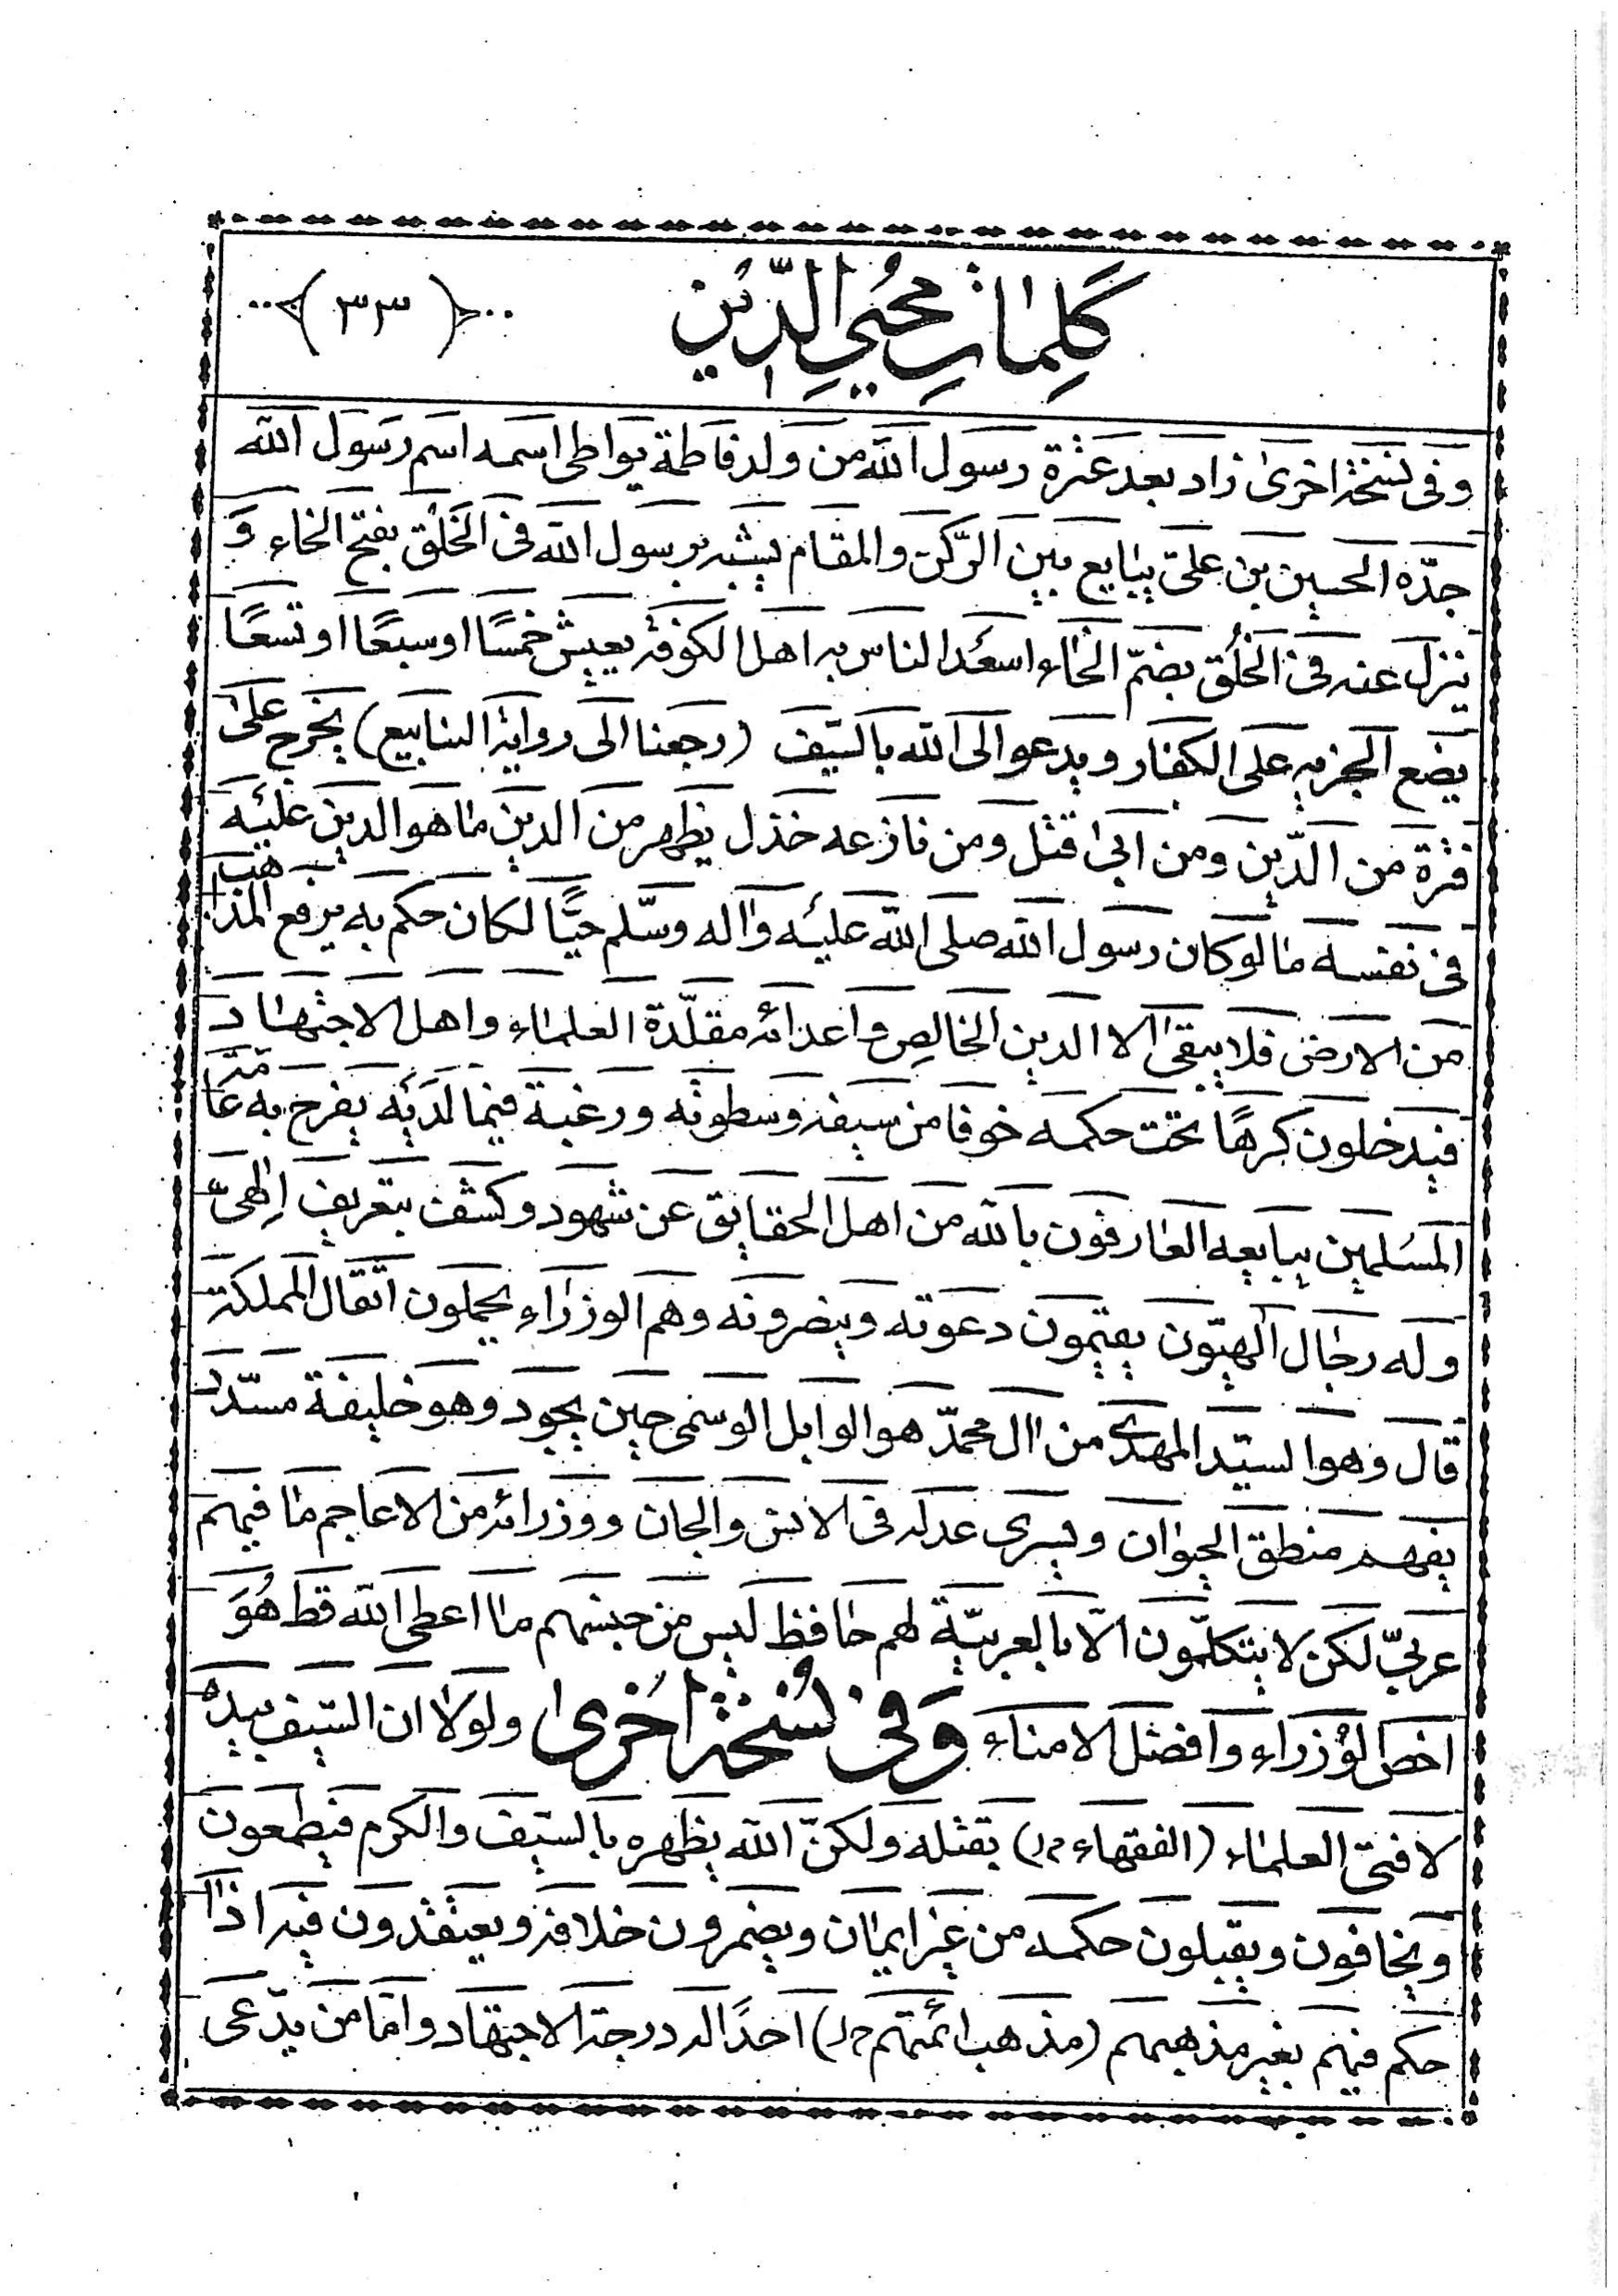 كلمات محيي الدين
(٣٣)
وفى نسخة اخرى زاد بعد عترة رسول الله من ولد فاطمة يواطى اسمه اسم رسول الله
جدّه الحسين بن علىّ يبايع بين الرّكن والمقام يشبه برسول الله فى الخَلق بفتح الخاء وَ
ينزل عنه فى الخُلق بضمّ الخاء اسعد الناس به اهل الكوفة يعيش خمسًا او سبعًا او تسعًا
يضع الجزيه على الكفار ويدعو الى الله بالسّيف (رجعنا الى رواية الينابيع) يخرج على
فترة من الدّين ومن ابى قتل ومن نازعه خذل يظهر من الدين ما هو الدين عليه
فى نفسه ما لو كان رسول الله صلى الله عليه وآله وسلّم حيًّا لكان حكم به يرفع المذاهب
من الارض فلا يبقى الا الدين الخالص واعدائه مقلّدة العلماء واهل الاجتهاد
فيدخلون كرهًا تحت حكمه خوفا من سيفه وسطوته ورغبة فيما لديه يفرح به عامّة
المسلمين يبايعه العارفون بالله من اهل الحقايق عن شهود وكشف بتعريف إلهىّ
وله رجال الهيّون يقيمون دعوته وينصرونه وهم الوزراء يحملون اثقال المملكة
قال وهو السيّد المهدى من ال محمّد هو الوابل الوسمى حين يجود وهو خليفة مسدّد
يفهم منطق الحيوان ويسرى عدله فى الانس والجان ووزرائه من الاعاجم ما فيهم
عربىّ لكن لا يتكلّمون الّا بالعربيّة لهم حافظ ليس من جنسهم ما اعطى الله قط هُوَ
اخص الوُزراء وافضل الامناء وَفى نُسخة اُخرى ولولا ان السّيف بيده
لافتى العلماء (الفقهاء) بقتله ولكنّ الله يظهره بالسّيف والكرم فيطمعون
ويخافون ويقبلون حكمه من غير ايمان ويضمرون خلافه ويعتقدون فيه اذا
حكم فيهم بغير مذهبهم (مذهب ائمتهم) احدًا له درجة الاجتهاد وامّا من يدّعى